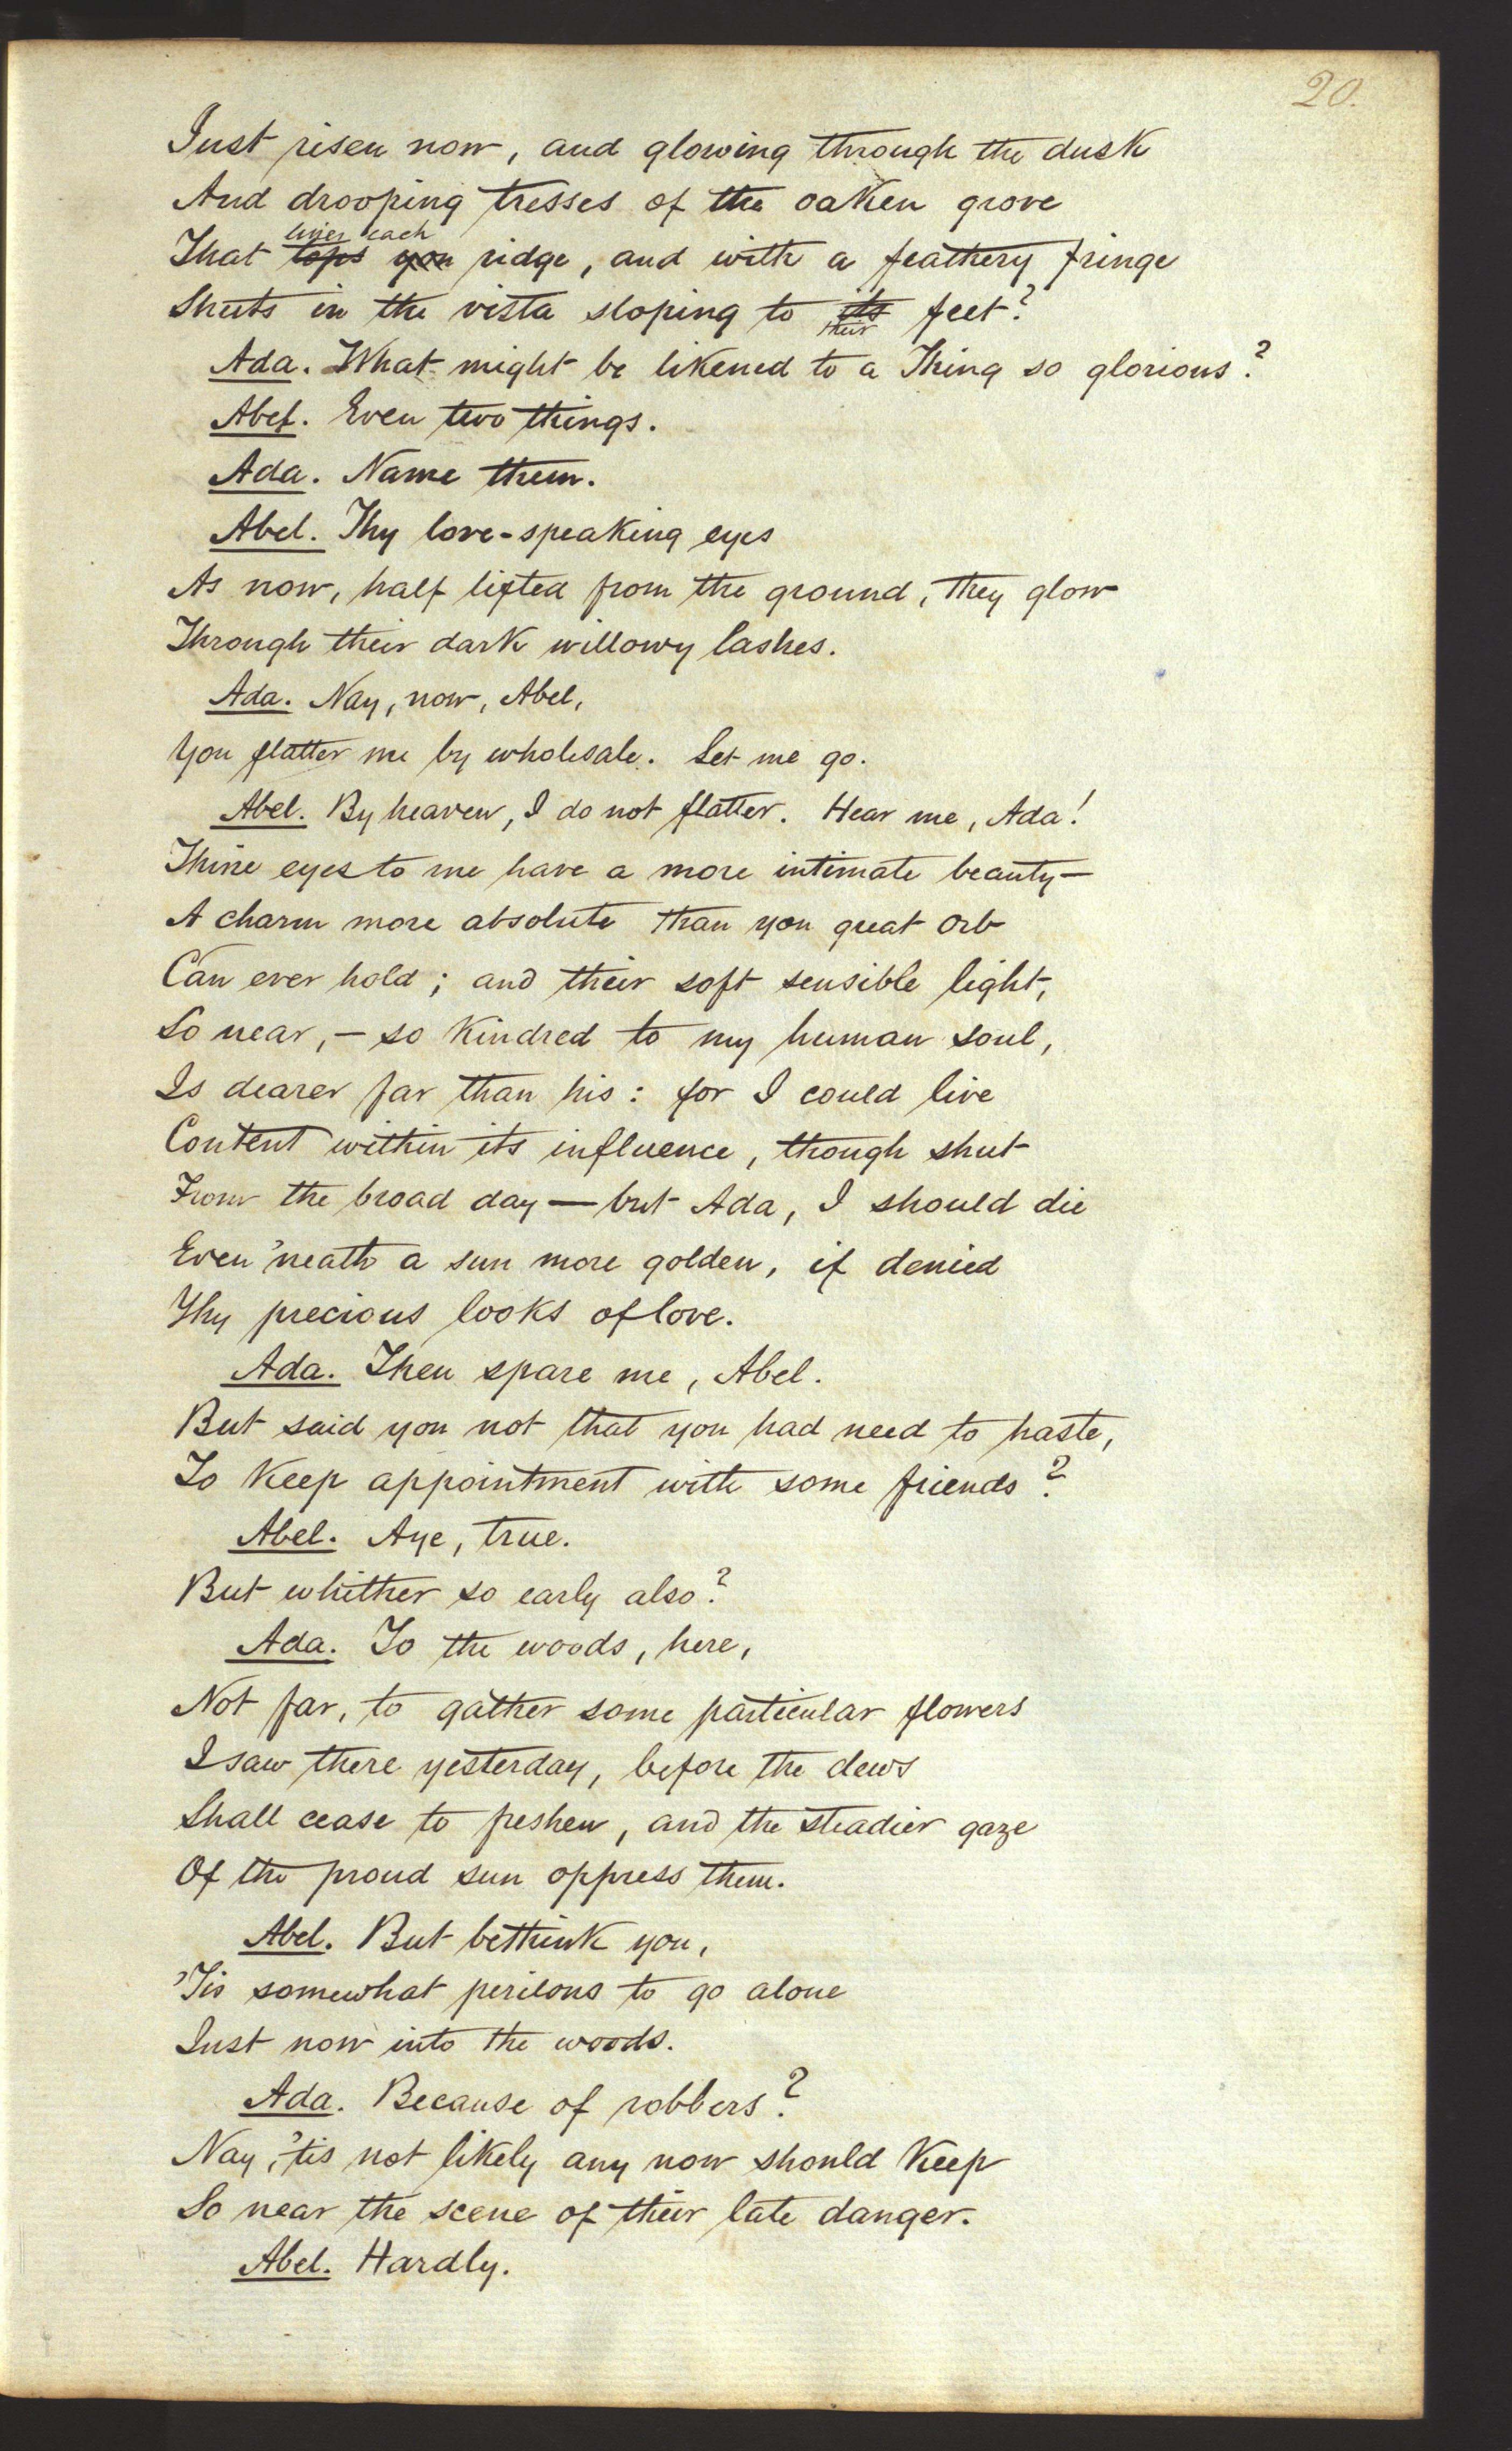 20.
Just risen now, and glowing through the dusk
And drooping tresses of the oaken grove
lines each
That tops yon ridge, and with a feathery fringe
Shuts in the vista sloping to its feet?
their
Ada. What might be likened to a Thing so glorious?
Abel. Even two things.
Ada. Name them.
Abel. Thy love-speaking eyes
As now, half lifted from the ground, they glow
Through their dark willowy lashes.
Ada. Nay, now, Abel,
You flatter me by wholesale. Let me go.
Abel. By heaven, I do not flatter. Hear me, Ada!
Thine eyes to me have a more intimate beauty—
A charm more absolute than yon great Orb
Can ever hold; and their soft sensible light,
So near, — so kindred to my human soul,
Is dearer far than his: for I could live
Content within its influence, though shut
From the broad day — but Ada, I should die
Even 'neath a sun more golden, if denied
Thy precious looks of love.
Ada. Then spare me, Abel.
But said you not that you had need to haste,
To keep appointment with some friends?
Abel. Aye, true.
But whither so early also?
Ada. To the woods, here,
Not far, to gather some particular flowers
I saw there yesterday, before the dews
Shall cease to freshen, and the steadier gaze
Of the proud sun oppress them.
Abel. But bethink you,
'Tis somewhat perilous to go alone
Just now into the woods.
Ada. Because of robbers?
Nay, 'tis not likely any now should keep
So near the scene of their late danger.
Abel. Hardly.